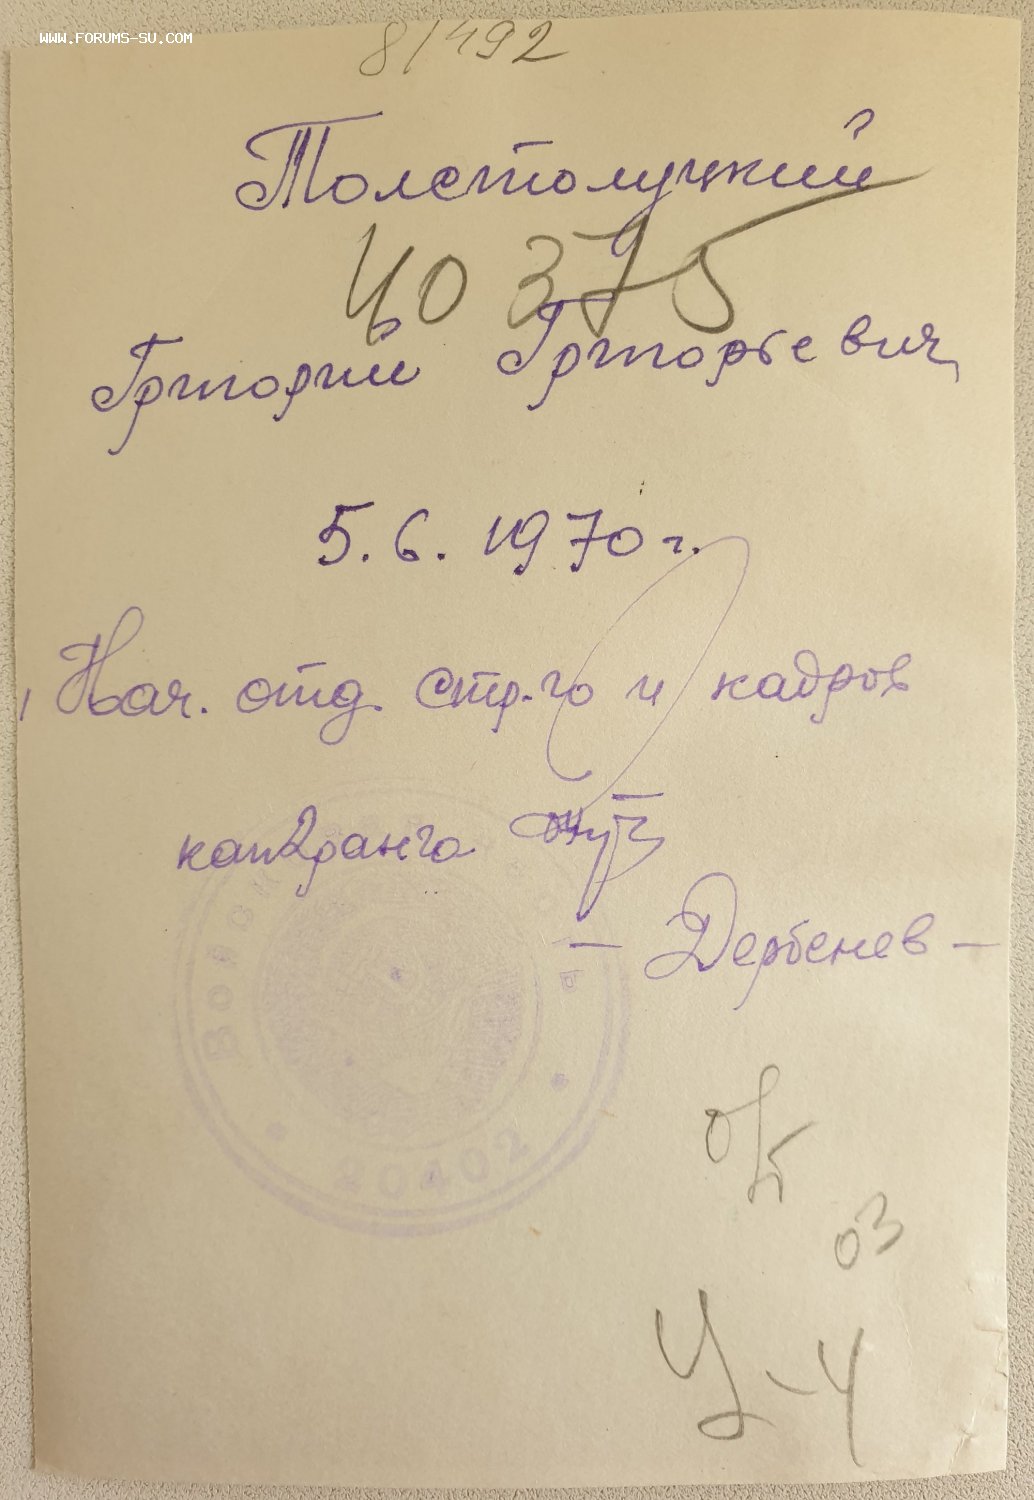 WWW.FORUMS-SU.COM
8/492
Толстолуцкий
40375
Григорий Григорьевич
5.6.1970 г.
Нач. отд. стр.го и кадров
кап 2 ранга
- Дербенев -
20402
03
У-4